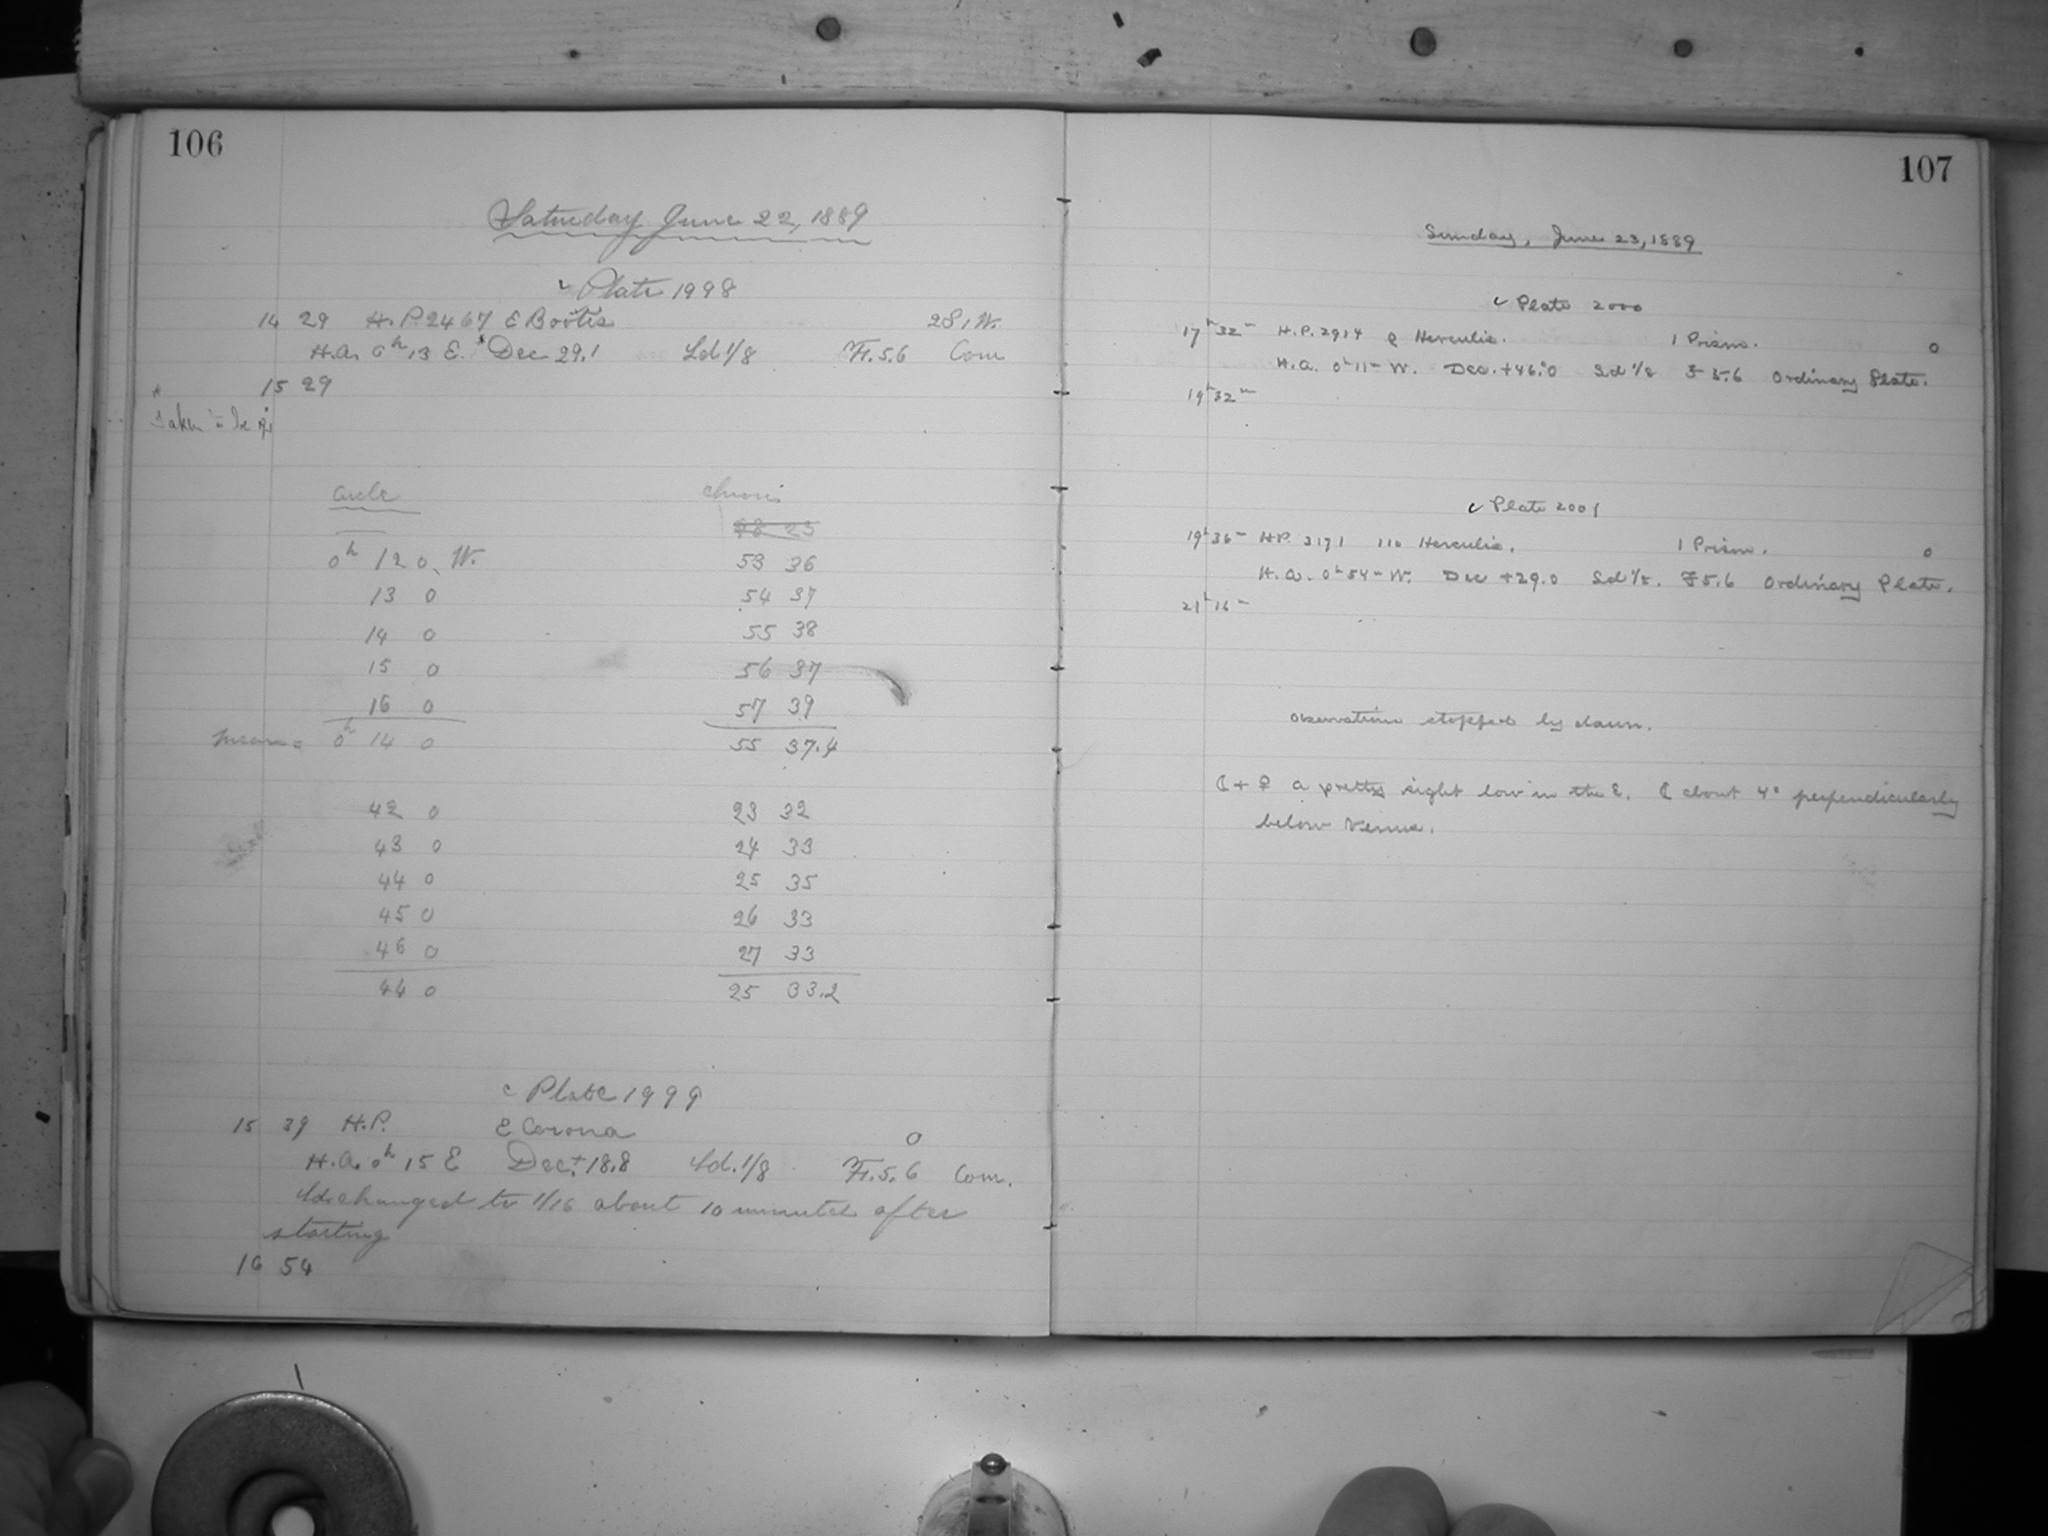 106
Saturday June 22, 1889
✓ Plate 1998
14 29 H.P. 2467 ε Bootis 2S, W.
H.A. 0h 13 E. * Dec 29.1 Sd. 1/8 F. 5.6 Com
15 29
*
Taken to be
Circle Chron
0h 12 0. W. 53 36
13 0 54 37
14 0 55 38
15 0 56 37
16 0 57 39
Mean = 0h 14 0 55 37.4
42 0 23 32
43 0 24 33
44 0 25 35
45 0 26 33
46 0 27 33
44 0 25 33.2
Plate 1999
15 39 H.P. ε Corona 0
H.A. 0h 15 E Dec. + 18.8 Sd. 1/8 F. 5.6 Com.
Sd. changed to 1/16 about 10 minutes after
starting
16 54
107
Sunday, June 23, 1889
✓ Plate 2000
17h 32m H.P. 2914 Herculis. 1 Prism. 0
H.A. 0h 11m W. Dec. +46.°0 Sd 1/8 F 5.6 Ordinary Plate.
19h 32m
✓ Plate 2001
19h 36m H.P. 3171 110 Herculis. 1 Prism. 0
H.A. 0h 54m W. Dec +29.0 Sd 1/8. F 5.6 Ordinary Plate.
21h 16m
Observations stopped by dawn.
☾ + ♀ a pretty sight low in the E. ☾ about 4° perpendicularly
below Venus.